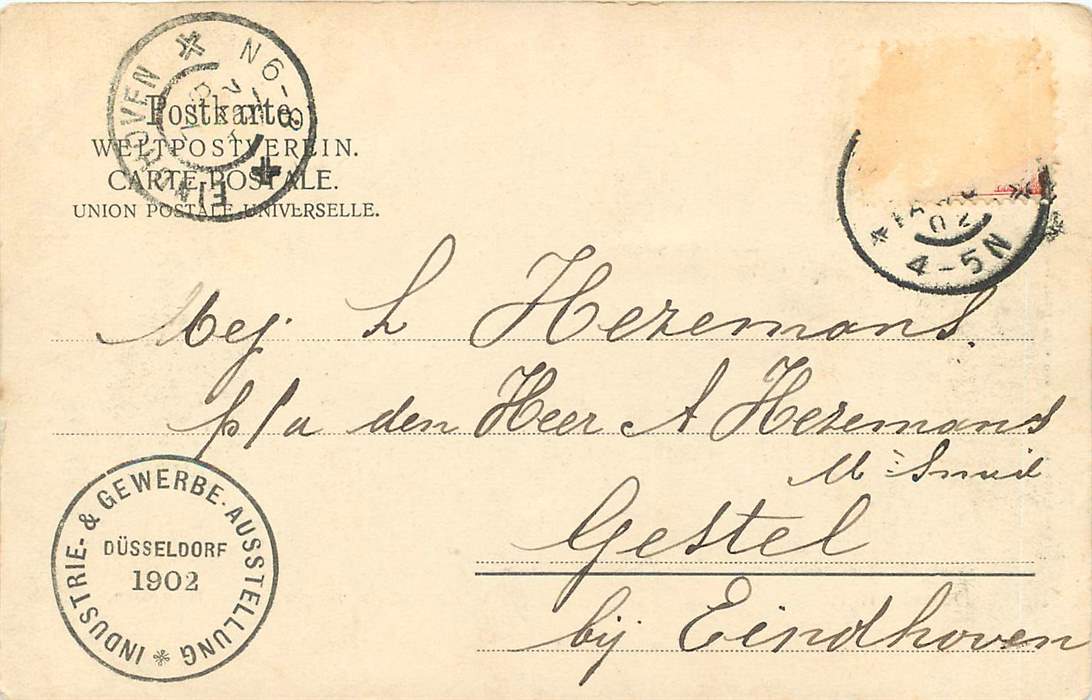 EINDHOVEN N6-8
Postkarte.
WELTPOSTVEREIN.
CARTE POSTALE.
UNION POSTALE UNIVERSELLE.
02
4-5N
Mej. L Hezemans.
p/a den Heer A Hezemans
Mr Smid
Gestel
bij Eindhoven
INDUSTRIE- & GEWERBE-AUSSTELLUNG
DÜSSELDORF
1902